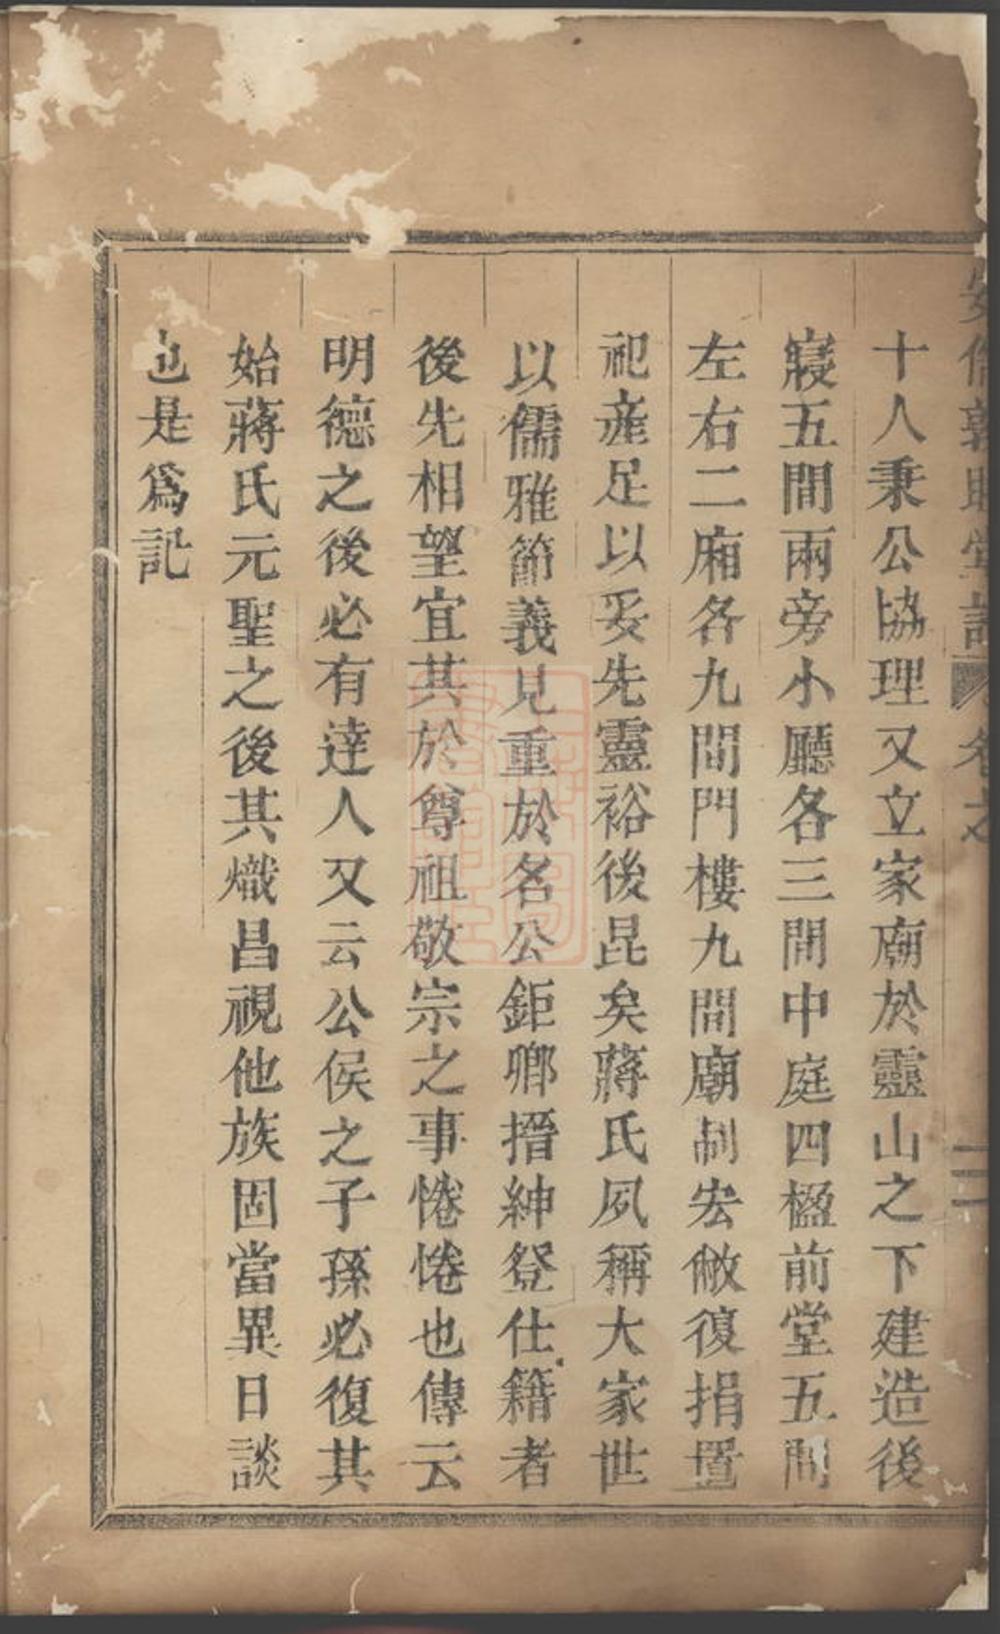 十人秉公協理又立家廟於靈山之下建造後
寢五間兩旁小廳各三間中庭四楹前堂五間
左右二廂各九間門樓九間廟制宏敞復捐置
祀產足以妥先靈裕後昆矣蔣氏夙稱大家世
以儒雅節義見重於名公鉅鄉搢紳登仕籍者
後先相望宜其於尊祖敬宗之事惓惓也傳云
明德之後必有達人又云公侯之子孫必復其
始蔣氏元聖之後其熾昌視他族固當異日談
也是爲記